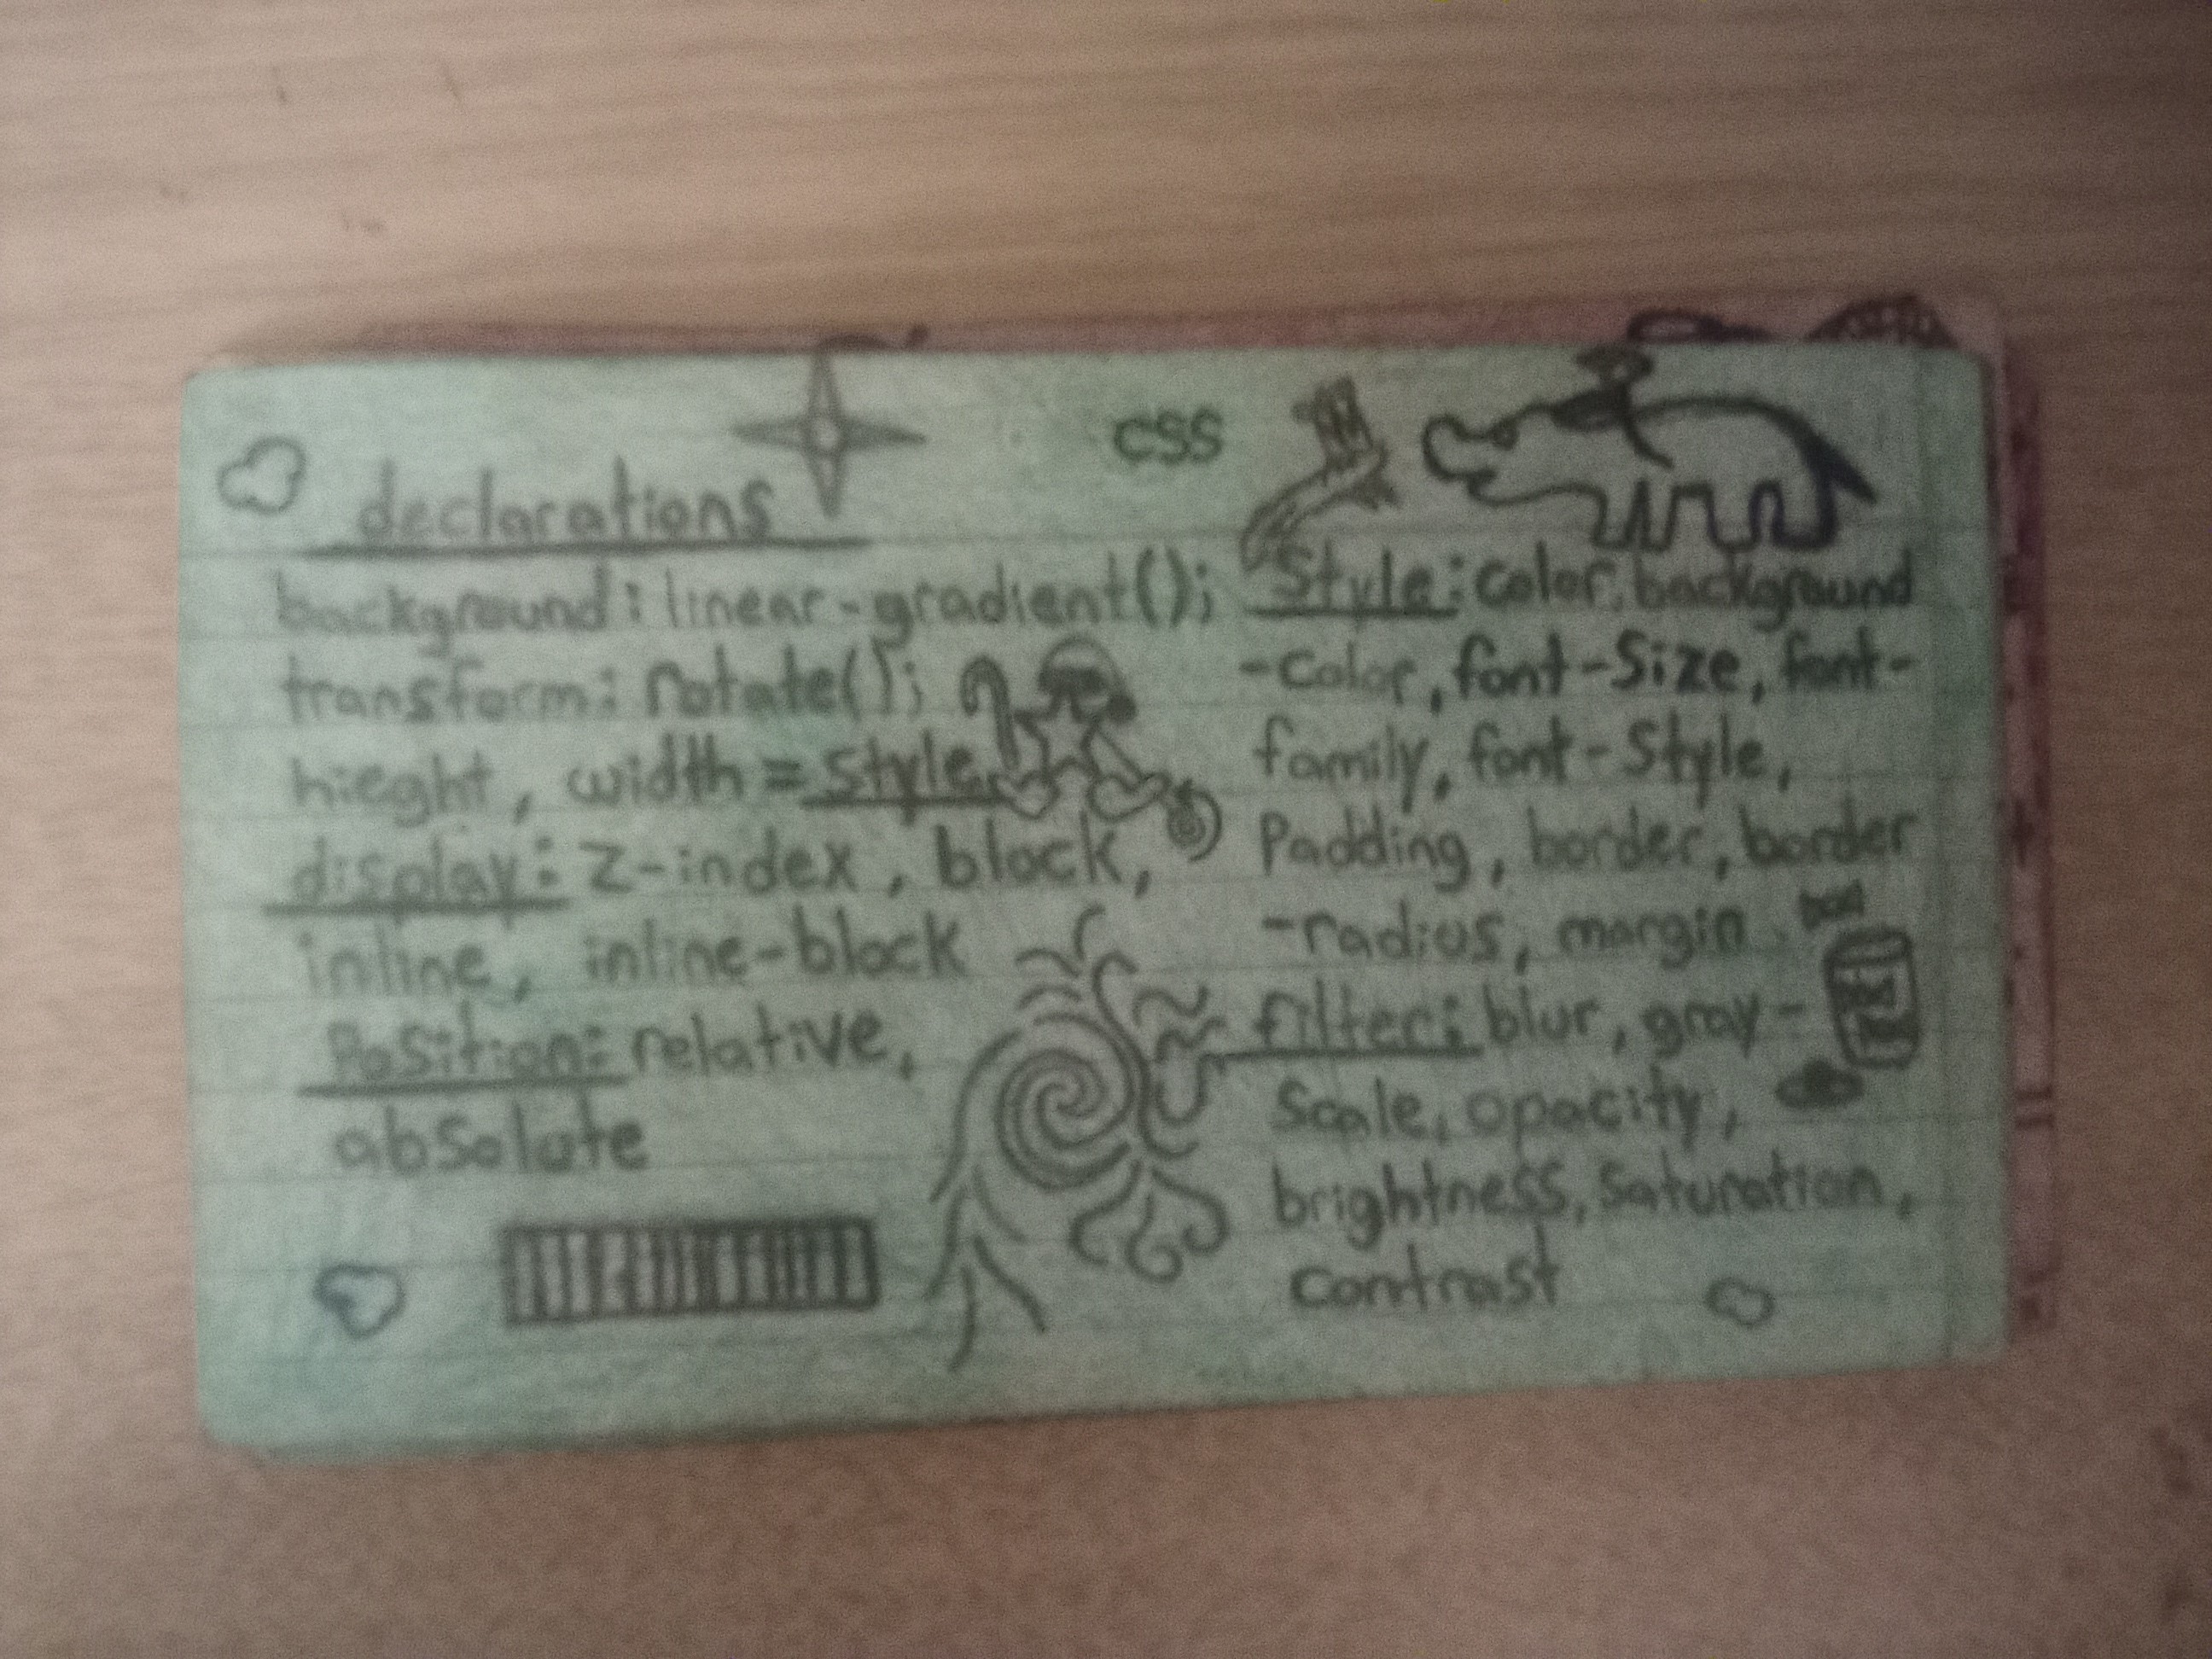 CSS
declarations
background: linear-gradient();
transform: rotate();
hieght, width = style
display: z-index, block,
inline, inline-block
Position: relative,
absolute
Style: color, background
-color, font-Size, font-
family, font-Style,
Padding, border, border
-radius, margin
filter: blur, gray-
Scale, opacity,
brightness, Saturation,
contrast